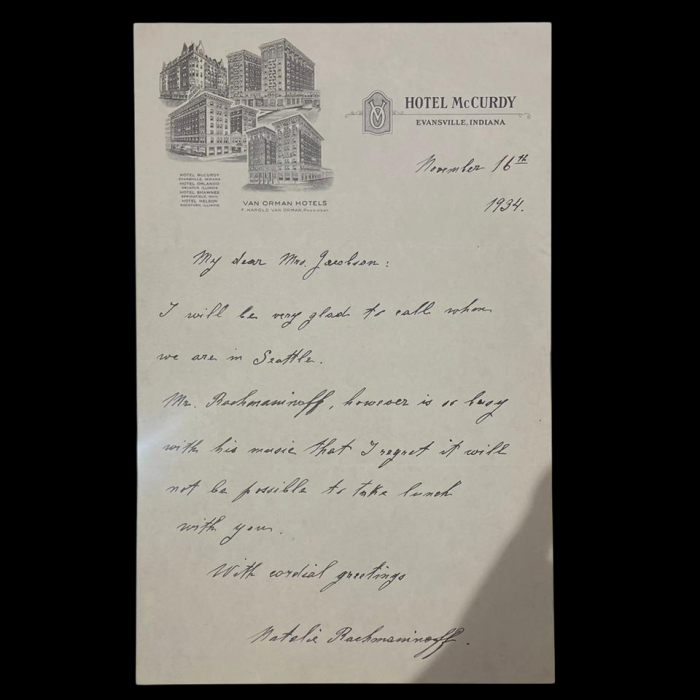 HOTEL McCURDY
EVANSVILLE, INDIANA
HOTEL McCURDY
EVANSVILLE INDIANA
HOTEL ORLANDO
DECATUR ILLINOIS
HOTEL SHAWNEE
SPRINGFIELD OHIO
HOTEL NELSON
ROCKFORD ILLINOIS
VAN ORMAN HOTELS
F. HAROLD VAN ORMAN, PRESIDENT
November 16th
1934.
My dear Mrs. Jacobson:
I will be very glad to call when
we are in Seattle.
Mr. Rachmaninoff, however is so busy
with his music that I regret it will
not be possible to take lunch
with you.
With cordial greetings
Natalie Rachmaninoff.